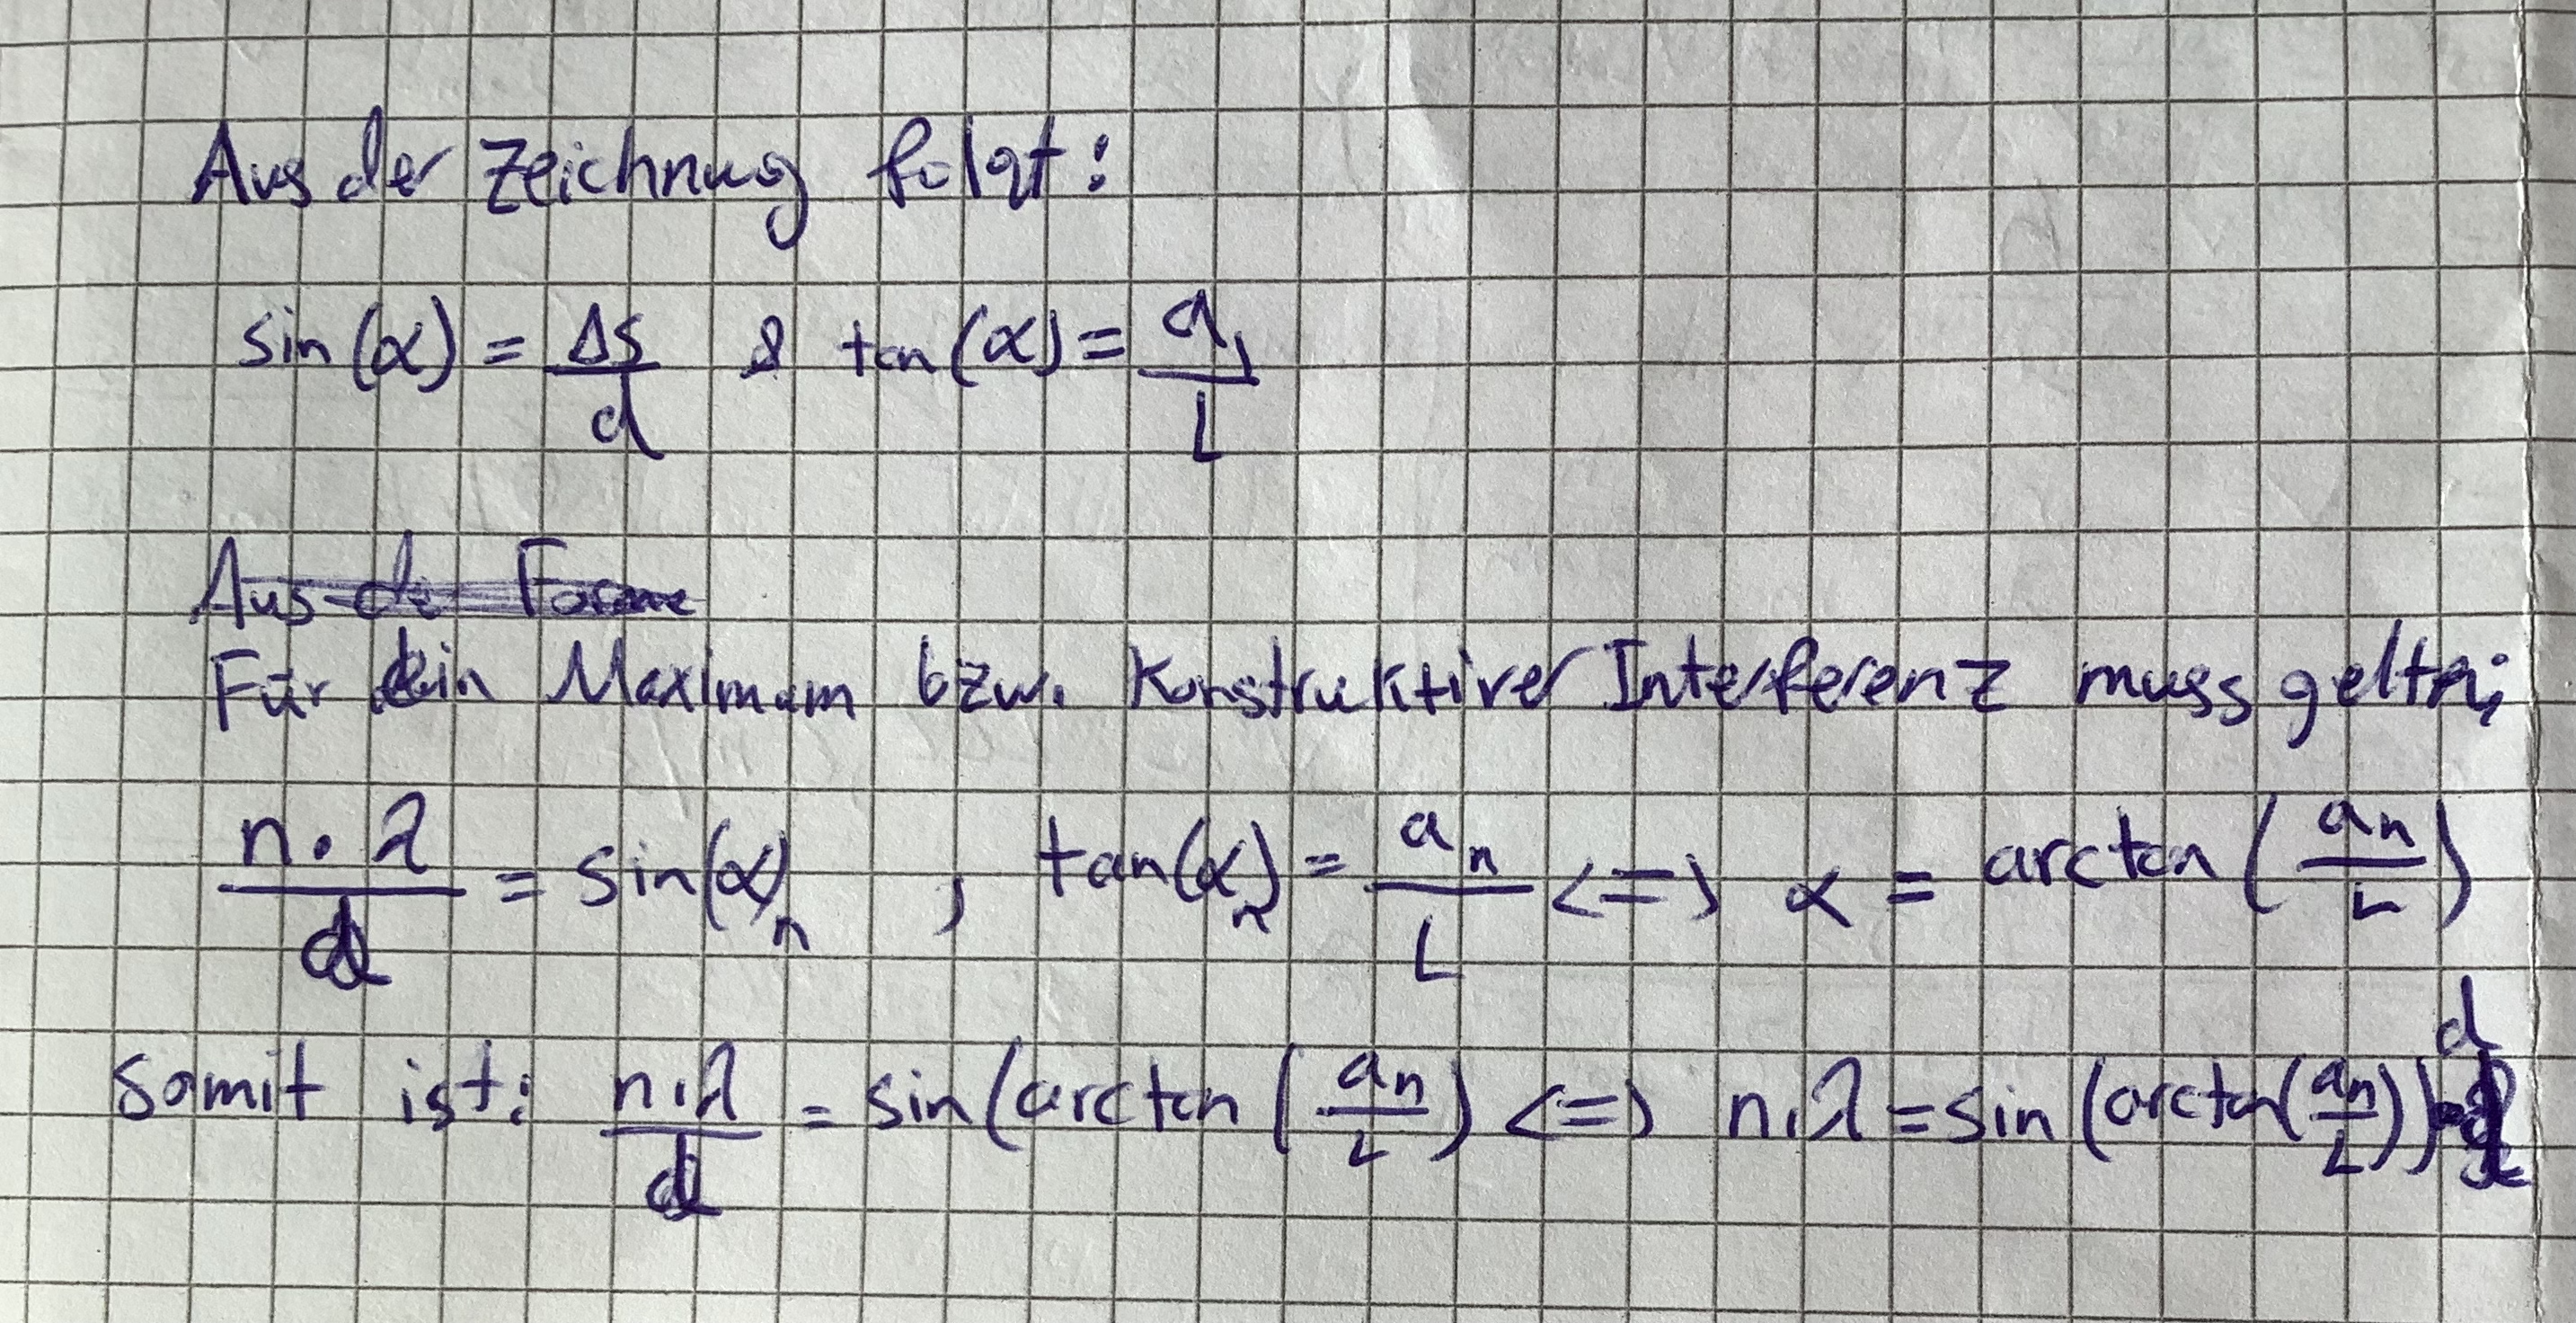 Aus der Zeichnung folgt:
sin(α) = Δs/d & tan(α) = a₁/L
Aus de Forme
Für ein Maximum bzw. Konstruktiver Interferenz muss gelten:
n · λ/d = sin(α)ₙ , tan(αₙ) = aₙ/L <=> α = arctan(aₙ/L)
Somit ist: n·λ/d = sin(arctan(aₙ/L) <=> n·λ = sin(arctan(aₙ/L)) d